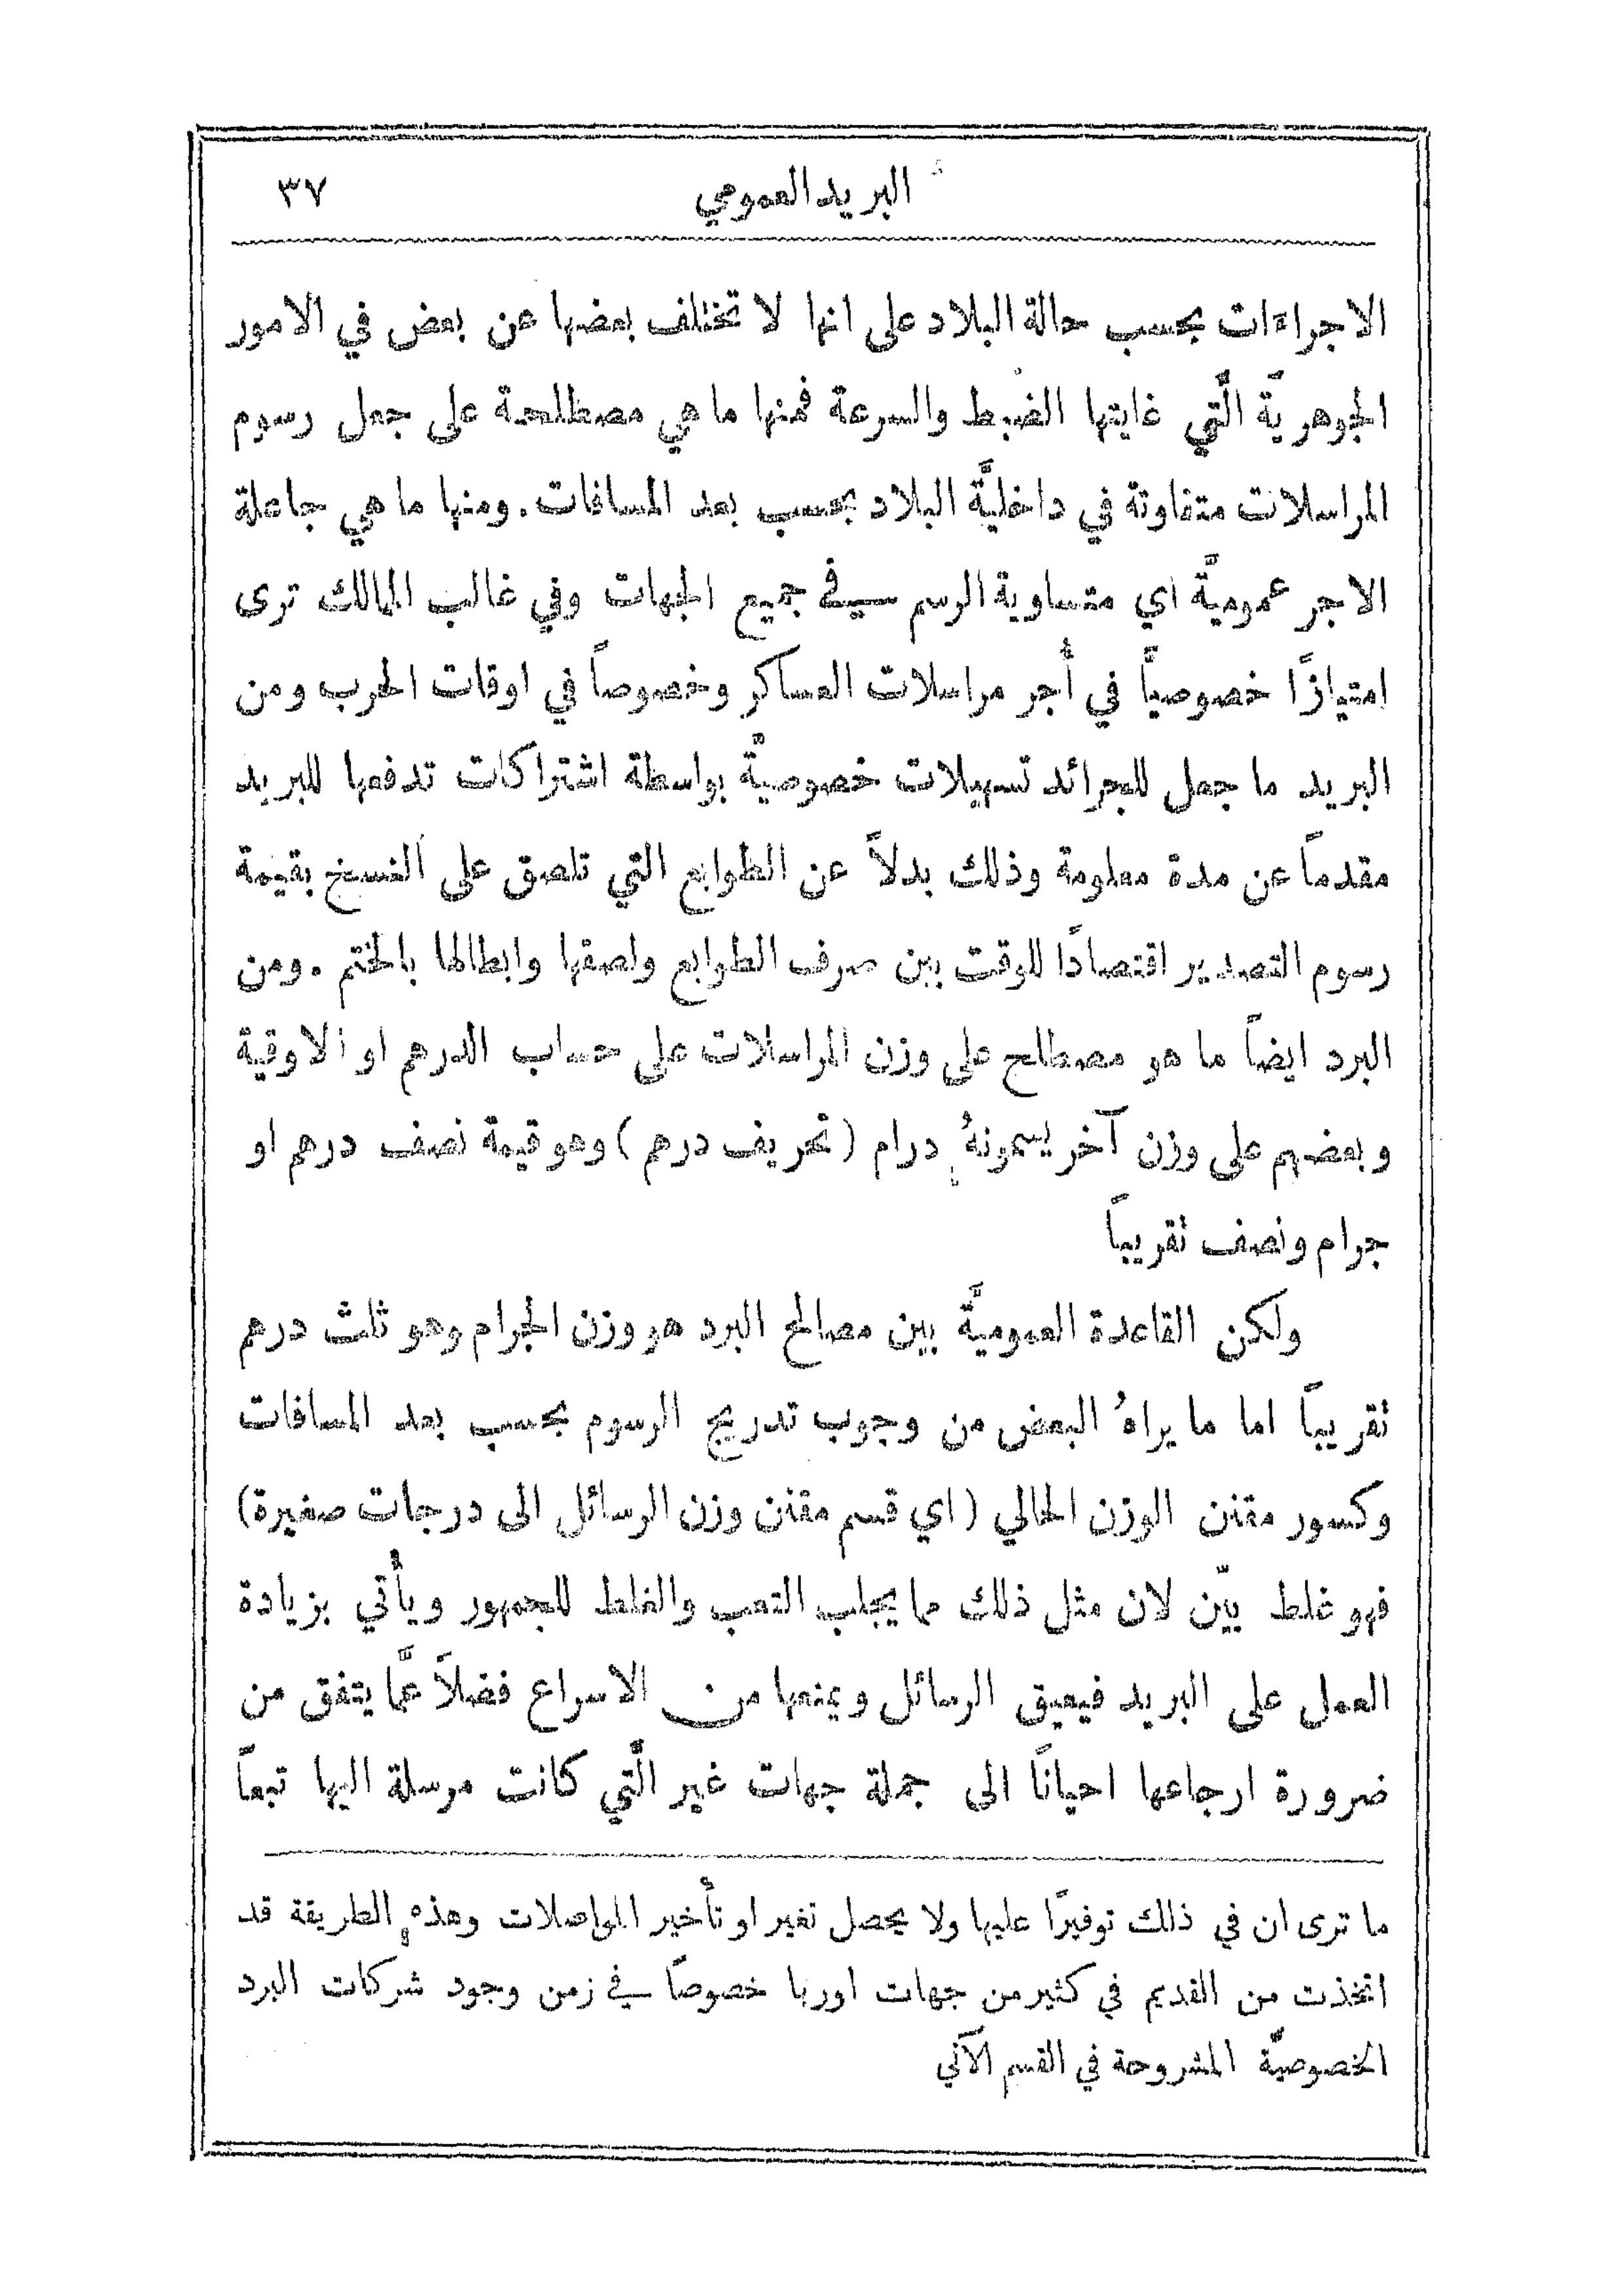 البريد العمومي ٣٧
الاجراءات بحسب حالة البلاد على انها لا تختلف بعضها عن بعض في الامور
الجوهريَّة الَّتي غايتها الضبط والسرعة فمنها ما هي مصطلحة على جعل رسوم
المراسلات متفاوتة في داخليَّة البلاد بحسب بعد المسافات. ومنها ما هي جاعلة
الاجر عموميَّة اي متساوية الرسم في جميع الجهات وفي غالب الممالك ترى
امتيازًا خصوصيًّا في أُجر مراسلات العساكر وخصوصاً في اوقات الحرب ومن
البريد ما جعل للجرائد تسهيلات خصوصيَّة بواسطة اشتراكات تدفعها للبريد
مقدماً عن مدة معلومة وذلك بدلاً عن الطوابع التي تلصق على النسخ بقيمة
رسوم التصدير اقتصادًا للوقت بين صرف الطوابع ولصقها وابطالها بالختم. ومن
البرد ايضاً ما هو مصطلح على وزن المراسلات على حساب الدرهم او الاوقية
وبعضهم على وزن آخر يسمونهُ درام (تحريف درهم) وهو قيمة نصف درهم او
جرام ونصف تقريباً
ولكن القاعدة العموميَّة بين مصالح البرد هو وزن الجرام وهو ثلث درهم
تقريباً اما ما يراهُ البعض من وجوب تدريج الرسوم بحسب بعد المسافات
وكسور مقنن الوزن الحالي (اي قسم مقنن وزن الرسائل الى درجات صغيرة)
فهو غلط بيّن لان مثل ذلك مما يجلب التعب والغلط للجمهور ويأتي بزيادة
العمل على البريد فيعيق الرسائل ويمنعها من الاسراع فضلاً عمَّا يتفق من
ضرورة ارجاعها احيانًا الى جملة جهات غير الَّتي كانت مرسلة اليها تبعاً
ما ترى ان في ذلك توفيرًا عليها ولا يحصل تغير او تأخير المواصلات وهذهِ الطريقة قد
اتخذت من القديم في كثير من جهات اوربا خصوصًا في زمن وجود شركات البرد
الخصوصيَّة المشروحة في القسم الآتي